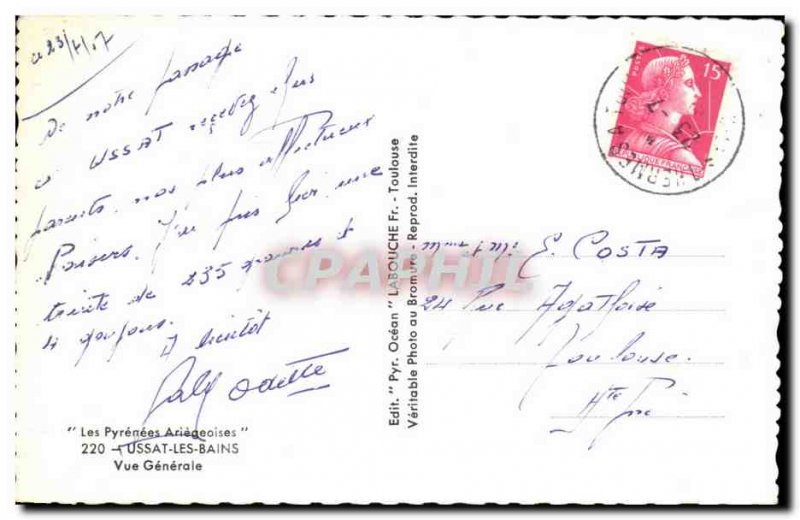 De notre passage
à USSAT recevez chers
parents nos plus affectueux
Baisers. J'ai pris hier une
truite de 235 grammes &
4 goujons.
A bientôt
Odette
" Les Pyrénées Ariègeoises "
220 - USSAT-LES-BAINS
Vue Générale
Edit. " Pyr. Océan " LABOUCHE Fr. - Toulouse
Véritable Photo au Bromure - Reprod. Interdite
CPAPHIL
POSTES 15F
REPUBLIQUE FRANÇAISE
E. COSTA
24 Rue Agathoise
Toulouse
Hte